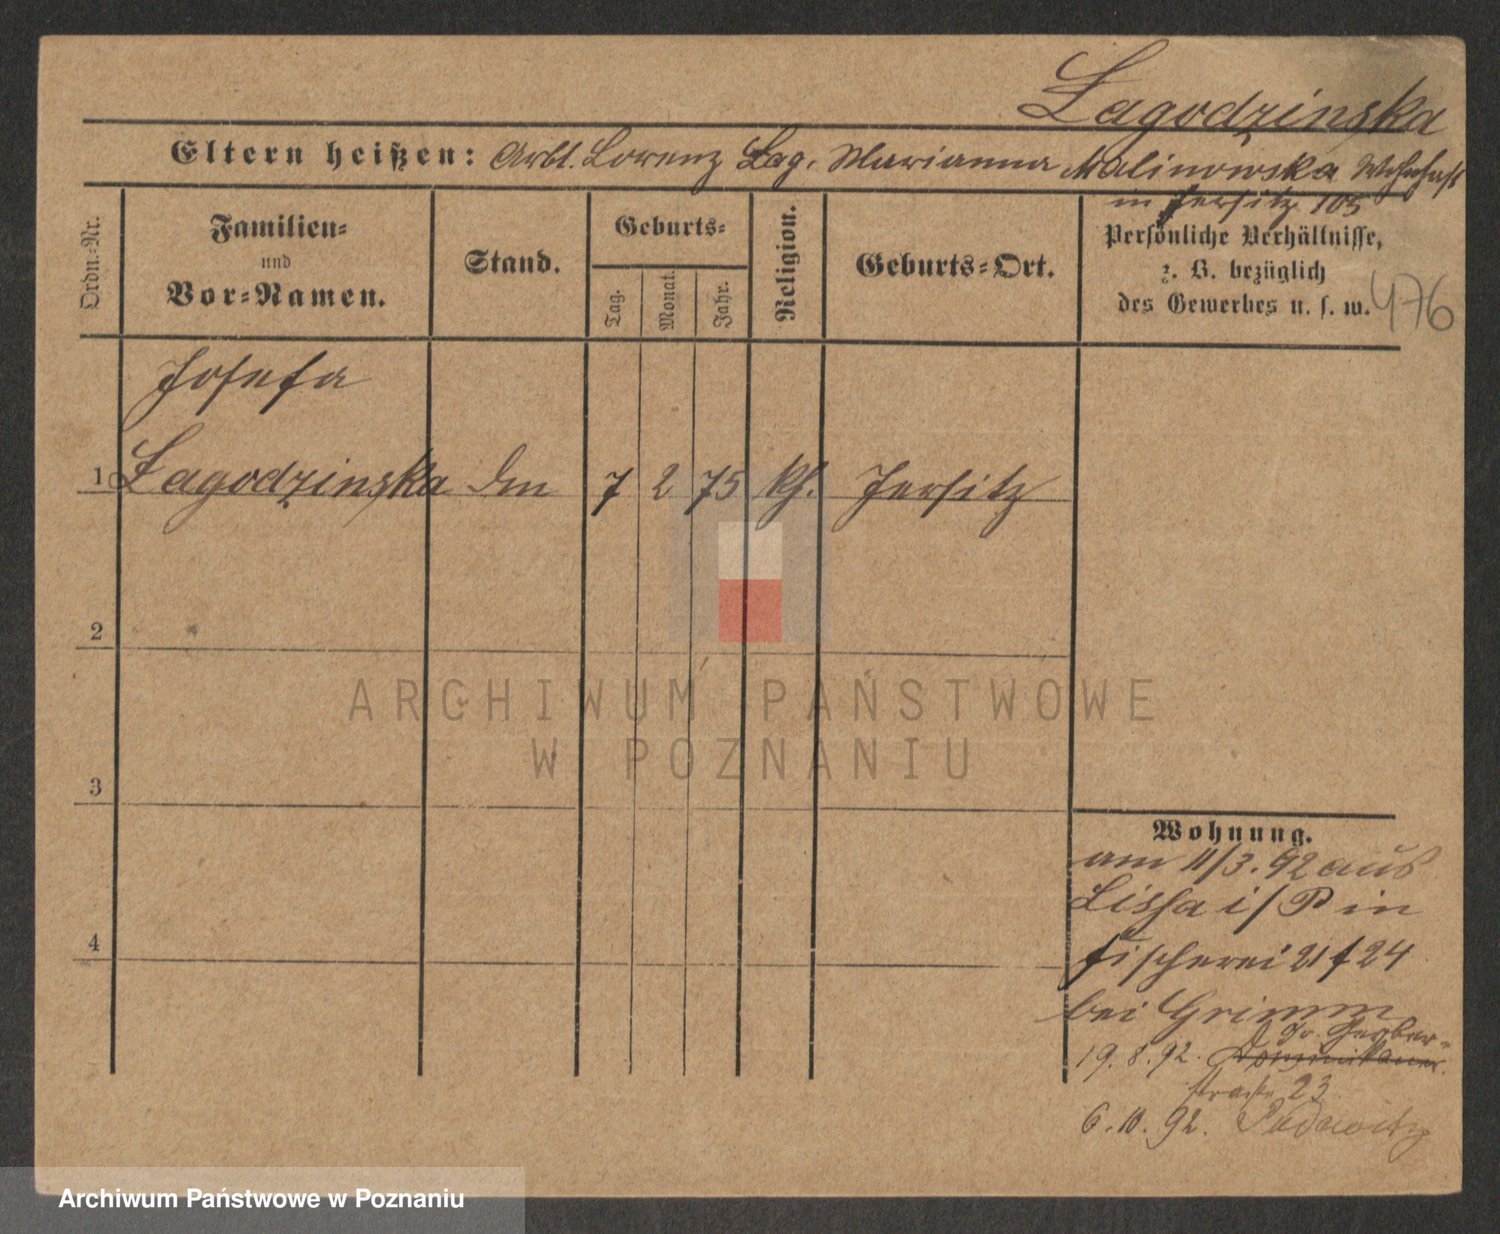 Łagodzinska
Eltern heißen: Arbt. Lorenz Łag. Marianna Malinowska Wohnhaft
in Jersitz 105
Ordn.-Nr.
Familien-
und
Vor-Namen.
Stand.
Geburts-
Tag.
Monat.
Jahr.
Religion.
Geburts-Ort.
Persönliche Verhältnisse,
z. B. bezüglich
des Gewerbes u. s. w.
476
Josefa
1 Łagodzinska 7 2 75 kh. Jersitz
2
3
4
Wohnung.
am 11/3. 92 aus
Lissa i/P in
Fischerei 21 f 24
bei Grimm
Gr. Gerber-
19. 8. 92. Dominikaner
straße 23
6. 10. 92. Pudewitz
ARCHIWUM PAŃSTWOWE
W POZNANIU
Archiwum Państwowe w Poznaniu